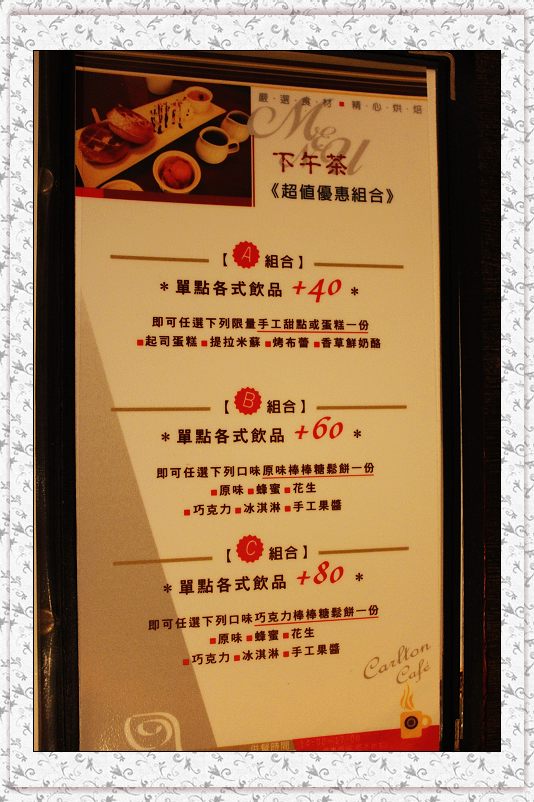 嚴・選・食・材■精・心・烘・焙
MENU
下午茶
《超值優惠組合》
【A組合】
＊單點各式飲品 +40 ＊
即可任選下列限量手工甜點或蛋糕一份
■起司蛋糕 ■提拉米蘇 ■烤布蕾 ■香草鮮奶酪
【B組合】
＊單點各式飲品 +60 ＊
即可任選下列口味原味棒棒糖鬆餅一份
■原味 ■蜂蜜 ■花生
■巧克力 ■冰淇淋 ■手工果醬
【C組合】
＊單點各式飲品 +80 ＊
即可任選下列口味巧克力棒棒糖鬆餅一份
■原味 ■蜂蜜 ■花生
■巧克力 ■冰淇淋 ■手工果醬
Carlton
Café
供餐時間